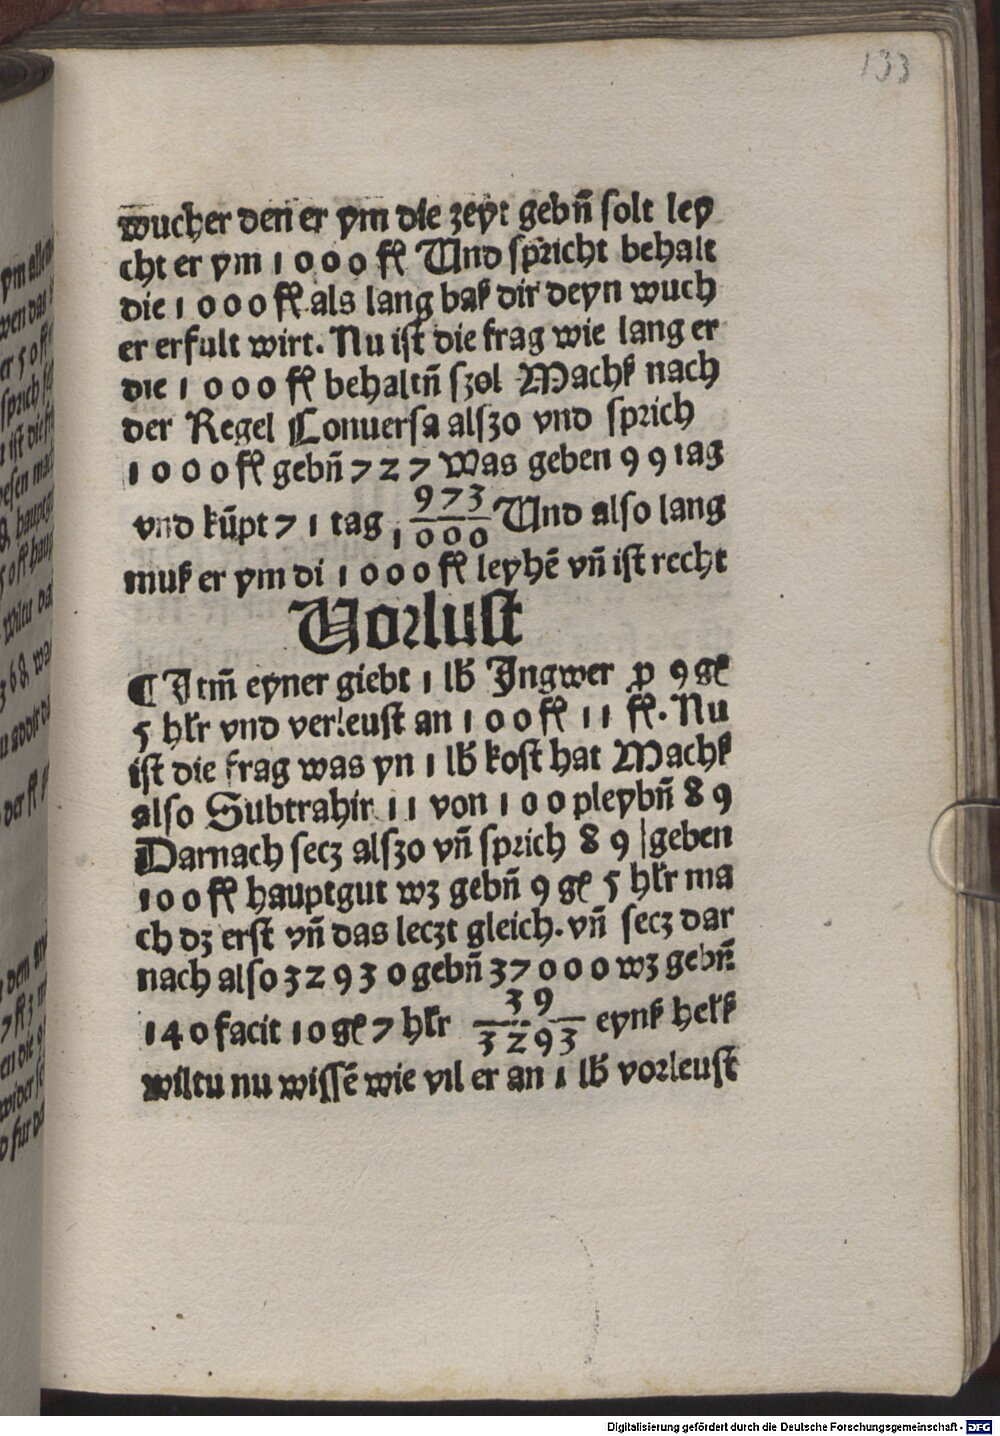 133
wucher den er ym die zeyt gebñ solt ley
cht er ym 1000 fl Und spricht behalt
die 1000 fl als lang baß dir deyn wuch
er erfult wirt. Nu ist die frag wie lang er
die 1000 fl behaltñ szol Machß nach
der Regel Conuersa alszo vnd sprich
1000 fl gebñ 727 Was geben 99 tag
vnd kũpt 71 tag 973/1000 Und also lang
muß er ym di 1000 fl leyhẽ vñ ist recht
Vorlust
¶ Itm̃ eyner giebt 1 lb Ingwer ꝓ 9 gꝭ
5 hlr vnd verleust an 100 fl 11 fl. Nu
ist die frag was yn 1 lb kost hat Machß
also Subtrahir 11 von 100 pleybñ 89
Darnach secz alszo vñ sprich 89 geben
100 fl hauptgut wz gebñ 9 gꝭ 5 hlr ma
ch dz erst vñ das leczt gleich. vñ secz dar
nach also 32930 gebñ 37000 wz gebñ
140 facit 10 gꝭ 7 hlr 39/3293 eynß helrß
wiltu nu wissẽ wie vil er an 1 lb vorleust
Digitalisierung gefördert durch die Deutsche Forschungsgemeinschaft - DFG